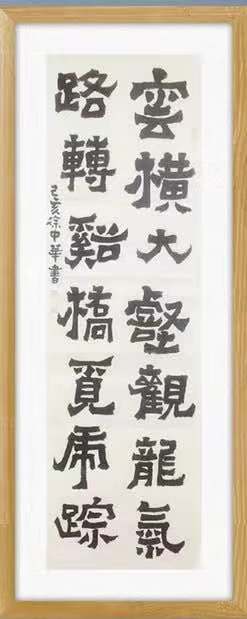 雲橫大壑觀龍氣
路轉谿橋覓虎踪
己亥徐中華書